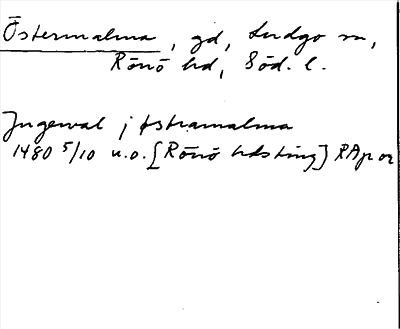 Östermalma, gd, Ludgo sn,
Rönö hd, Söd. l.
Jngewal j östramalma
1480 5/10 u.o. [Rönö hdsting] RAp or